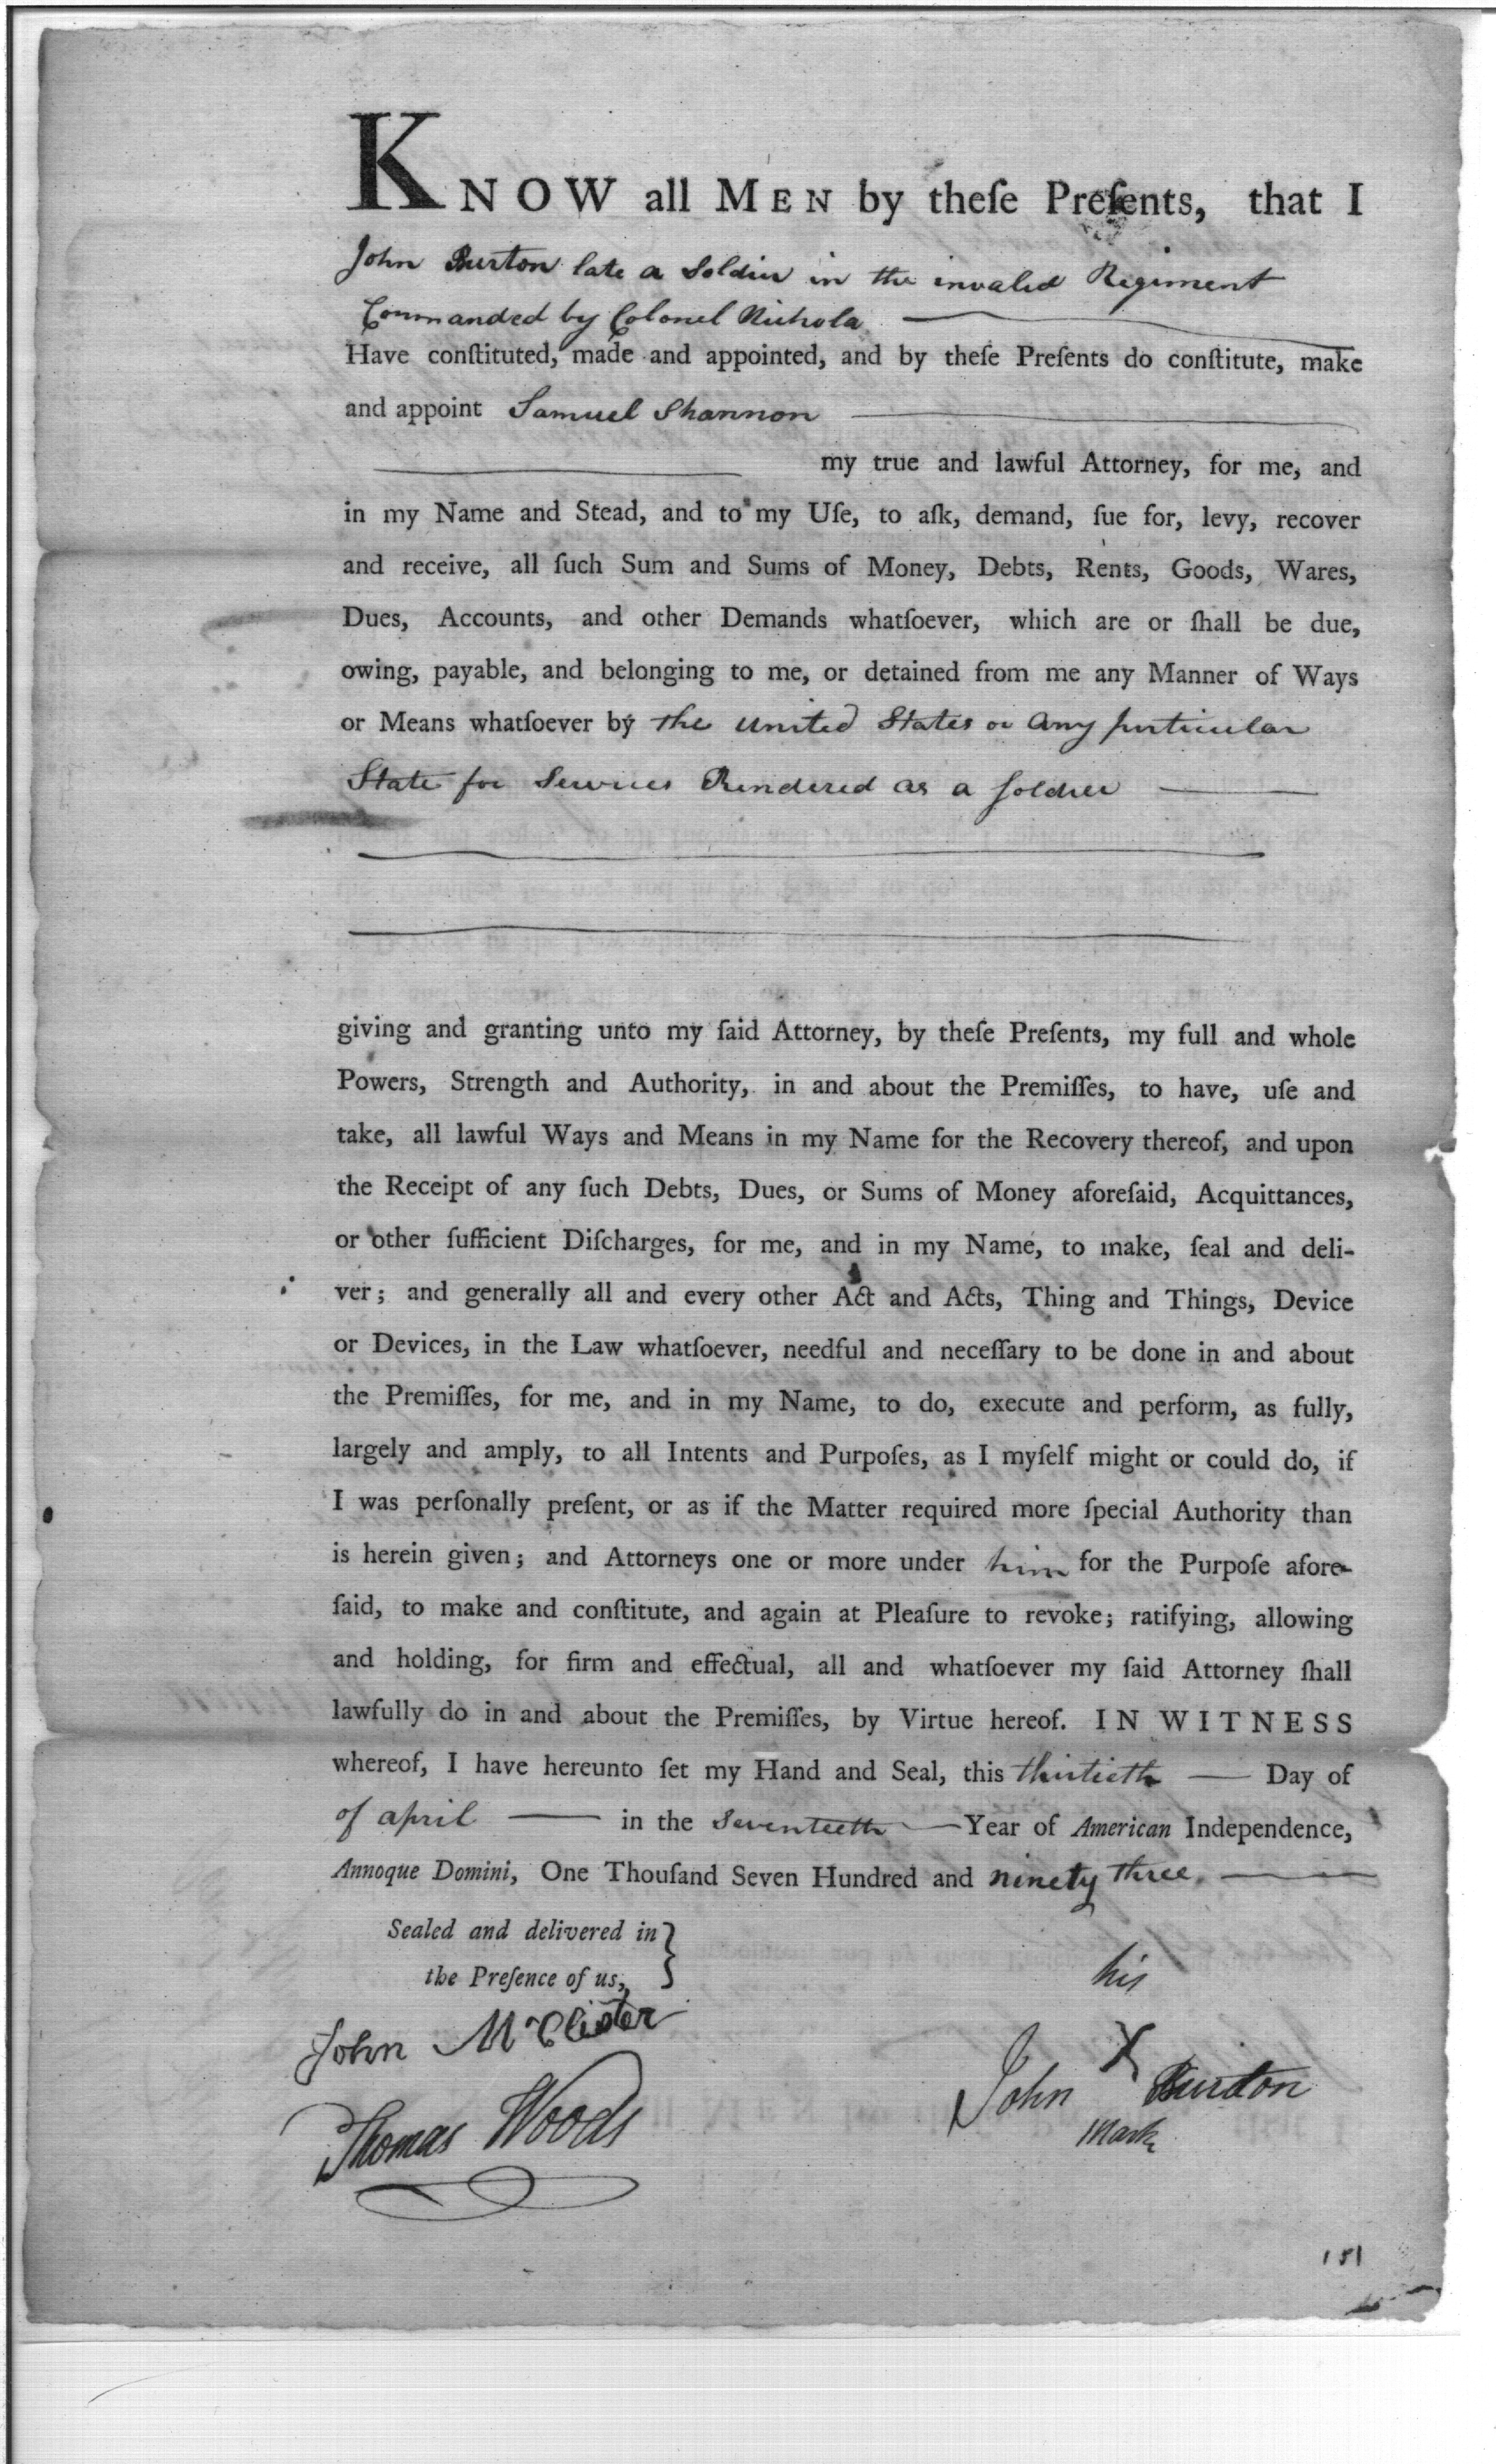 KNOW all MEN by theſe Preſents, that I
John Burton late a Soldier in the invalid Regiment
Commanded by Colonel Nichola
Have conſtituted, made and appointed, and by theſe Preſents do conſtitute, make
and appoint Samuel Shannon
my true and lawful Attorney, for me, and
in my Name and Stead, and to my Uſe, to aſk, demand, ſue for, levy, recover
and receive, all ſuch Sum and Sums of Money, Debts, Rents, Goods, Wares,
Dues, Accounts, and other Demands whatſoever, which are or ſhall be due,
owing, payable, and belonging to me, or detained from me any Manner of Ways
or Means whatſoever by the United States or any perticular
State for Services Rendered as a ſoldier
giving and granting unto my ſaid Attorney, by theſe Preſents, my full and whole
Powers, Strength and Authority, in and about the Premiſſes, to have, uſe and
take, all lawful Ways and Means in my Name for the Recovery thereof, and upon
the Receipt of any ſuch Debts, Dues, or Sums of Money aforeſaid, Acquittances,
or other ſufficient Diſcharges, for me, and in my Name, to make, ſeal and deli-
ver; and generally all and every other Act and Acts, Thing and Things, Device
or Devices, in the Law whatſoever, needful and neceſſary to be done in and about
the Premiſſes, for me, and in my Name, to do, execute and perform, as fully,
largely and amply, to all Intents and Purpoſes, as I myſelf might or could do, if
I was perſonally preſent, or as if the Matter required more ſpecial Authority than
is herein given; and Attorneys one or more under him for the Purpoſe afore-
ſaid, to make and conſtitute, and again at Pleaſure to revoke; ratifying, allowing
and holding, for firm and effectual, all and whatſoever my ſaid Attorney ſhall
lawfully do in and about the Premiſſes, by Virtue hereof. IN WITNESS
whereof, I have hereunto ſet my Hand and Seal, this thirtieth — Day of
of april — in the Seventeeth — Year of American Independence,
Annoque Domini, One Thouſand Seven Hundred and ninety three.
Sealed and delivered in }
the Preſence of us,
his
John McClister
John X Burton
mark
Thomas Woods
151